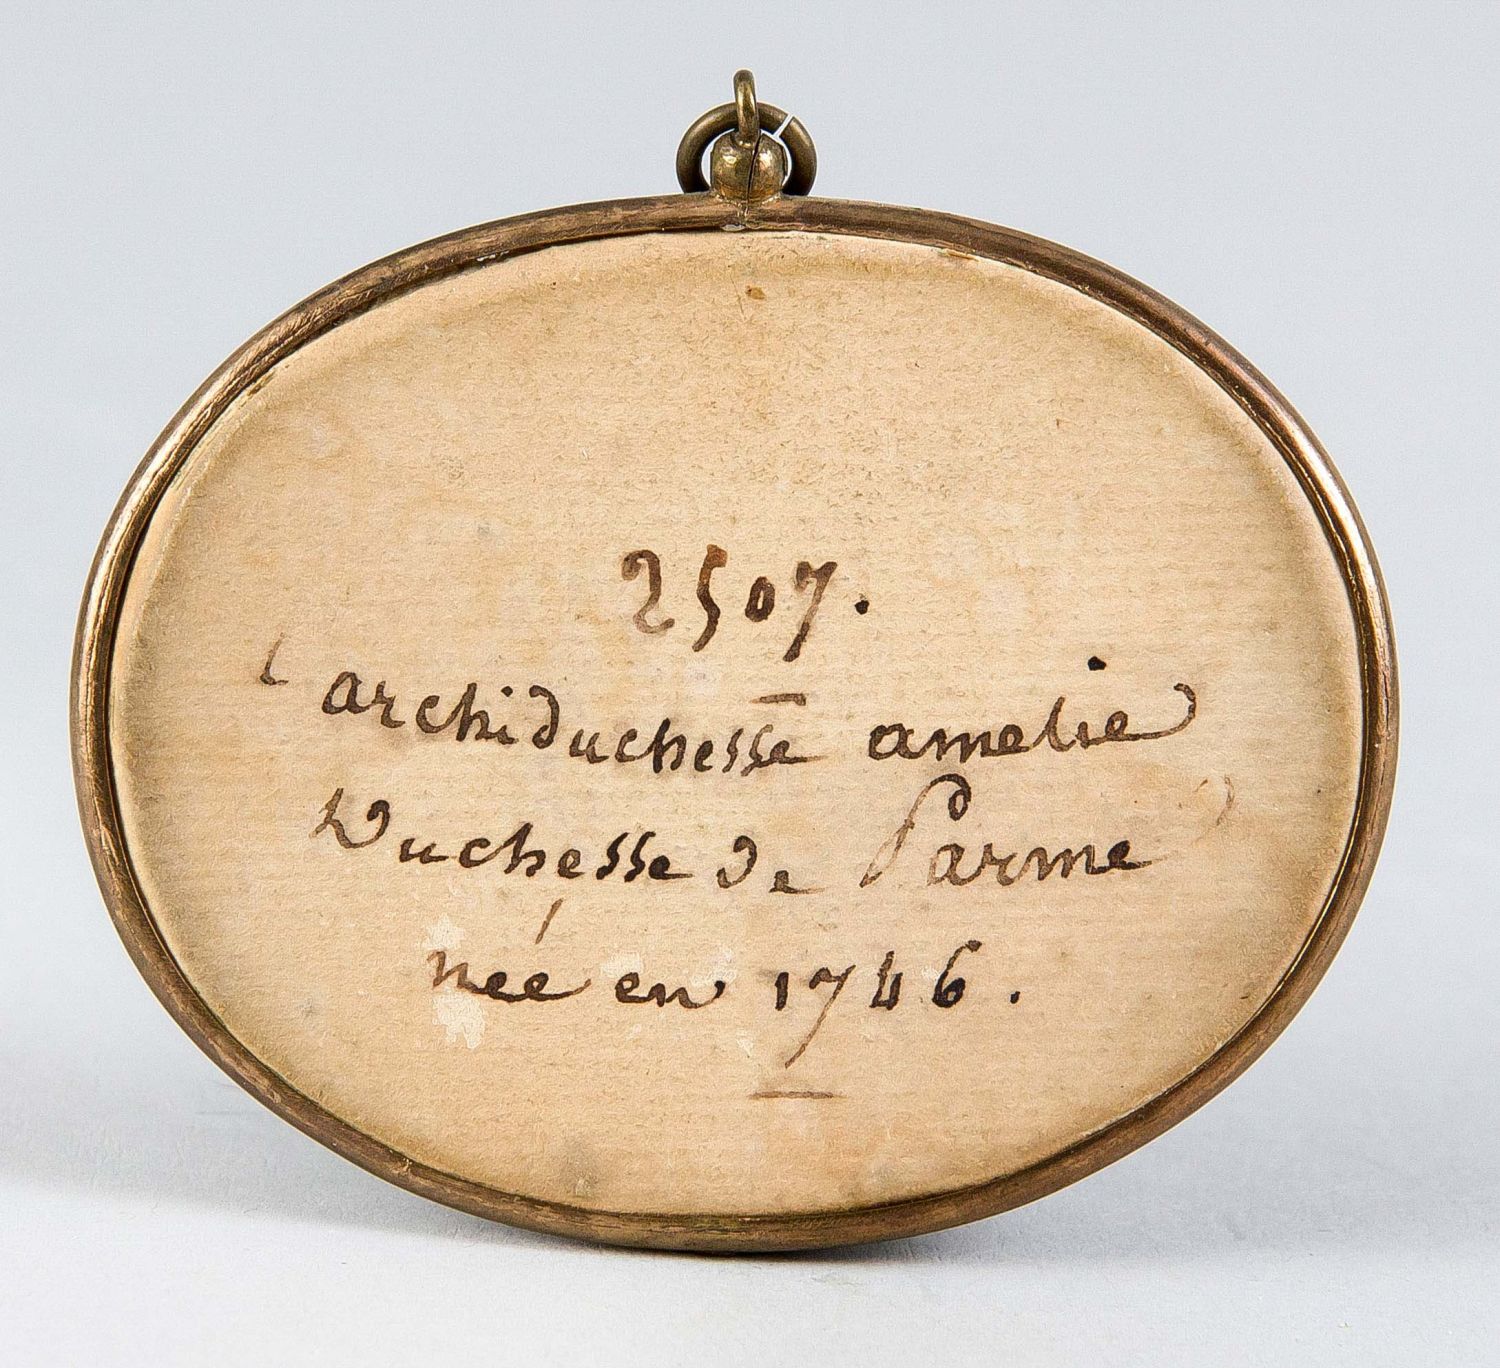 2507.
l'archiduchesse amelie
Duchesse de Parme
née en 1746.